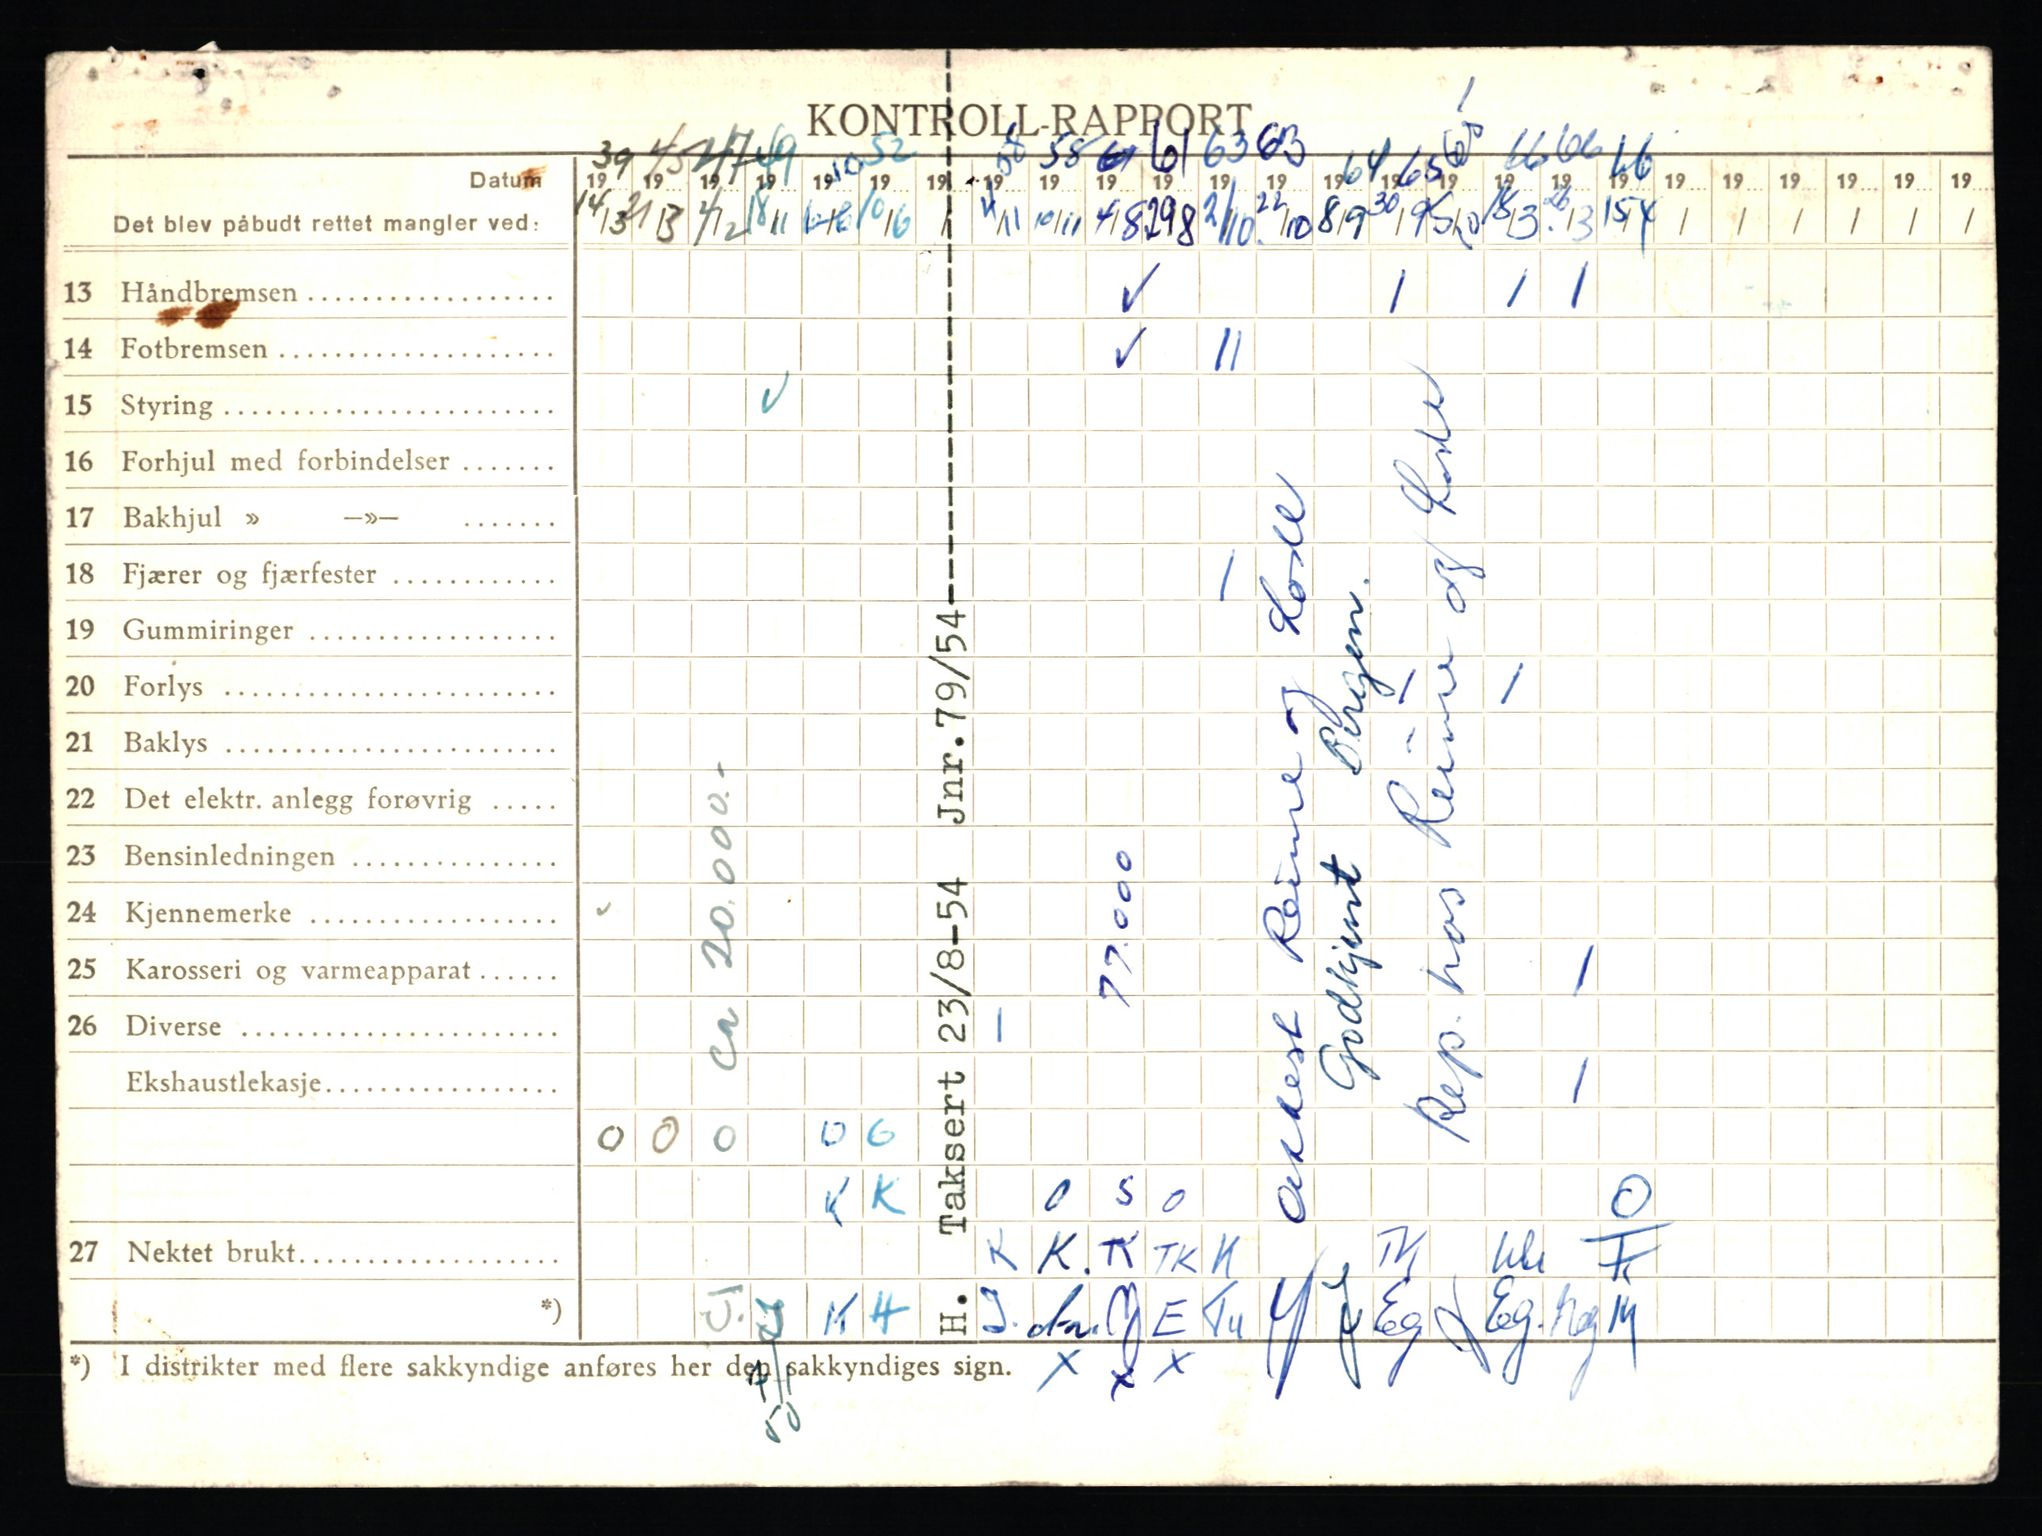 KONTROLL-RAPPORT
39 45 47 49 50 52 58 58 61 61 63 63 64 65 65 66 66 66
Datum 19 19 19 19 19 19 19 19 19 19 19 19 19 19 19 19 19 19 19 19 19 19 19 19 19
Det blev påbudt rettet mangler ved: 14/3 21/3 4/12 18/11 10/6 / 4/11 10/11 4/8 29/8 2/10 22/10 8/9 30/9 5/10 18/3 26/3 15/4 / / / / / /
13 Håndbremsen ✓ / / /
14 Fotbremsen ✓ //
15 Styring ✓
16 Forhjul med forbindelser
17 Bakhjul » —»—
18 Fjærer og fjærfester /
19 Gummiringer
20 Forlys / /
21 Baklys
22 Det elektr. anlegg forøvrig
23 Bensinledningen
24 Kjennemerke ✓
25 Karosseri og varmeapparat /
26 Diverse /
Ekshaustlekasje /
O O O O G
K K O S O O
27 Nektet brukt K K. TK TK K TK F
*) J. K H J. E Tu Y Eg Eg. M
X X X
ca 20.000.-
H. Taksert 23/8-54 Jnr.79/54
77.000
Attest Reime og Loste
Godkjent Bergen.
Rep. hos Reime og Loste
*) I distrikter med flere sakkyndige anføres her den sakkyndiges sign.